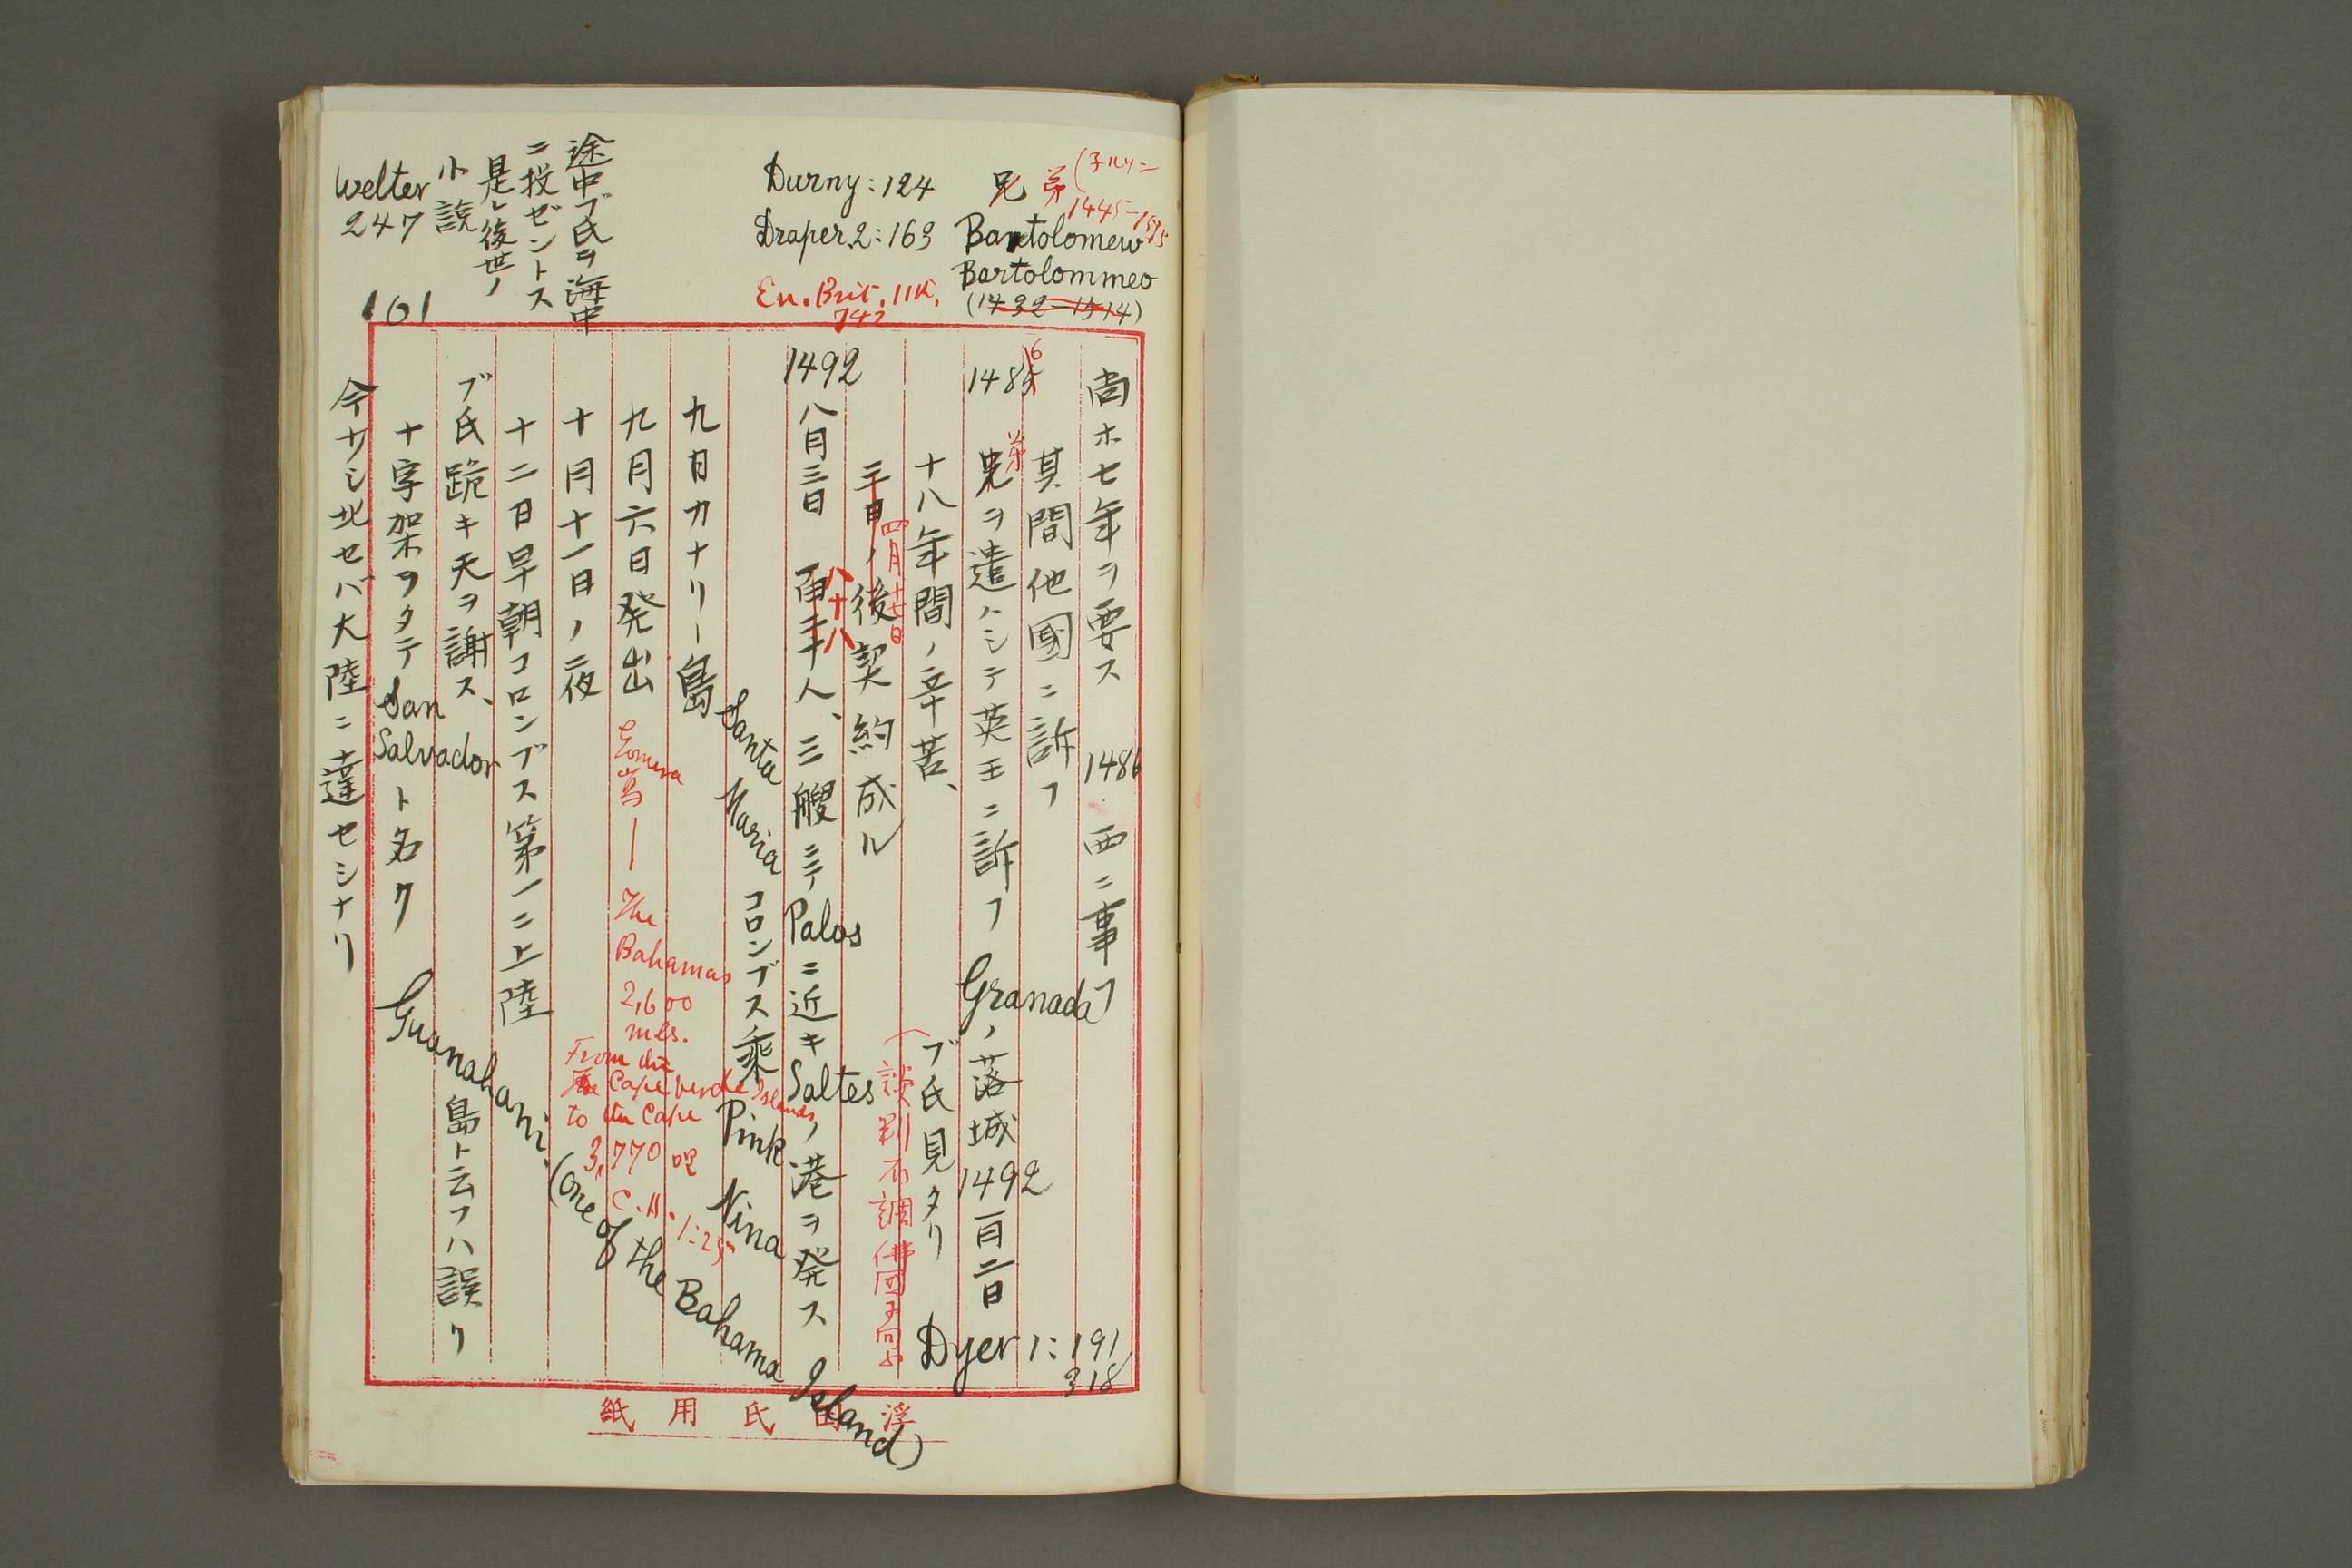 兄 弟
1445-1515
Bartolomew
Bartolommeo
(1432-1514)
Durny: 124
Draper, 2: 163
En. Brit. 11th,
742
途中ブ氏ヲ海中
ニ投ゼントス
是レ後世ノ
小説
Welter
247
101
尚ホ七年ヲ要ス 1486 西ニ事フ
其間他國ニ訴フ
1485 6 兄 弟 ヲ遣ハシテ英王ニ訴フ Granada ノ落城 1492 一月二日
十八年間ノ辛苦、 ブ氏見タリ
Dyer 1: 191
318
三月 四月十七日 ノ後契約成ル (談判不調佛国ニ向フ
1492 八月三日 百二十 八十八 人、三艘ニテ Palos ニ近キ Saltes ノ港ヲ発ス
Santa Maria コロンブス乗 Pink Nina
九日カナリー島
九月六日発出 Gomera 島 — The Bahamas 2,600 mls.
From the Cape Verde Islands to the Cape 3,770 哩
C.H. 1:25
十月十一日ノ夜
十二日早朝コロンブス第一ニ上陸
ブ氏跪キ天ヲ謝ス、
十字架ヲタテ San Salvador ト名ク Guanahani (one of the Bahama Island)
島ト云フハ誤リ
今少シ北セバ大陸ニ達セシナリ
浮田氏用紙